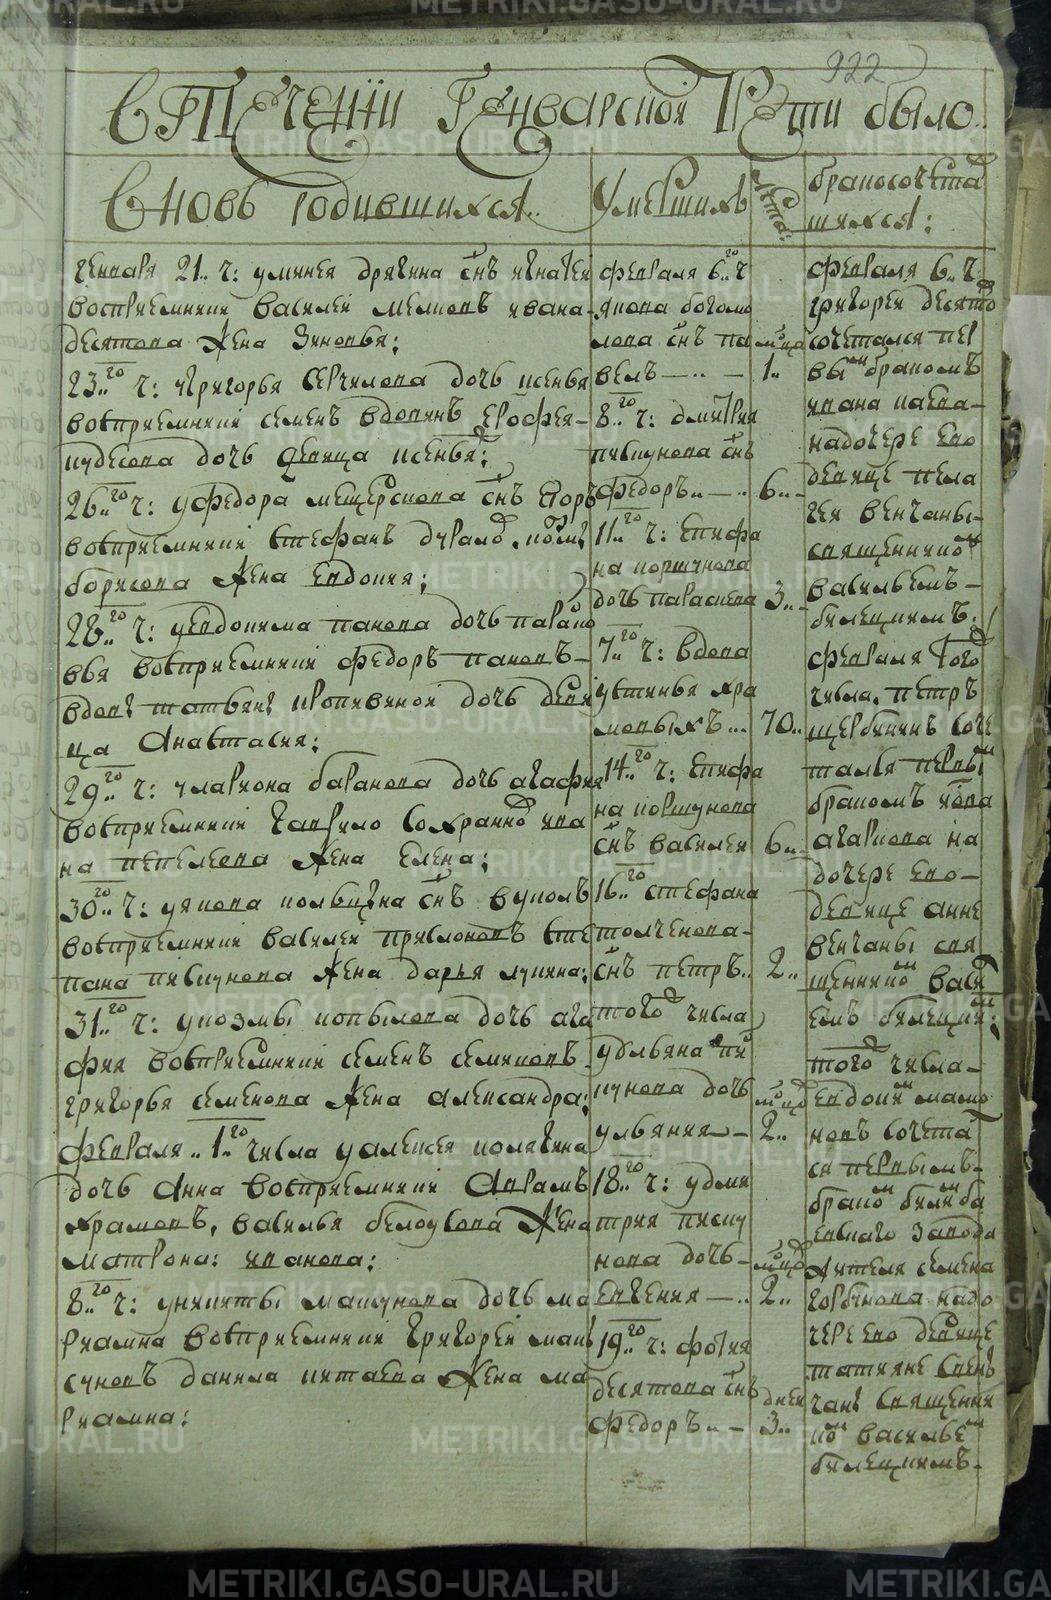 922
В Течении Генварской Трети было
Вновь родившихся..
генваря 21.. ч: у минея дрягина снъ игнатей
восприемники василей мелиовъ ивана
десятова жена зиновья:
23..го ч: григорья дочь ксенья
восприемники семенъ вдовинъ ерофея
кудесова дочь девица ксенья:
26..го ч: у федора мещерскова снъ егоръ
восприемники стефанъ козмы
борисова жена евдокия:
28..го ч: у евдокима панова дочь параско
вья восприемники федоръ пановъ
вдовы татьяны кропивиной дочь деви
ца Анастасия:
29..го ч: у лариона баранова дочь агафия
восприемники гаврило ива
на пепелева жена елена:
30..го ч: у якова снъ вуколъ
восприемники василей прислоновъ сте
пана пискунова жена дарья лукина:
31..го ч: у козмы копылова дочь ага
фия восприемники семенъ семиковъ
григорья семенова жена александра:
февраля.. 1..го числа у алексея колягина
дочь Анна восприемники Аврамъ
храмовъ, василья белоусова жена
матрона: иванова:
8..го ч: у никиты максунова дочь ма
риамна восприемники григорей мак
суновъ данила китаева жена ма
риамна:
Умершихъ
лета:
февраля 6..го ч
якова богомо
лова снъ па месяца
велъ — 1..
8..го ч: дмитрия
пискунова снъ
федоръ.. — 6..
11..го ч: епифа
на коршунова
дочь параскева 3..
7..го ч: вдова
устинья хра
мовыхъ... 70..
14..го ч: епифа
на коршунова
снъ василей 6..
16..го стефана
толченова
снъ петръ.. 2..
того числа
ульяна пи
кунова дочь месяцов
ульяния — 2..
18..го ч: у дми
трия писку
нова дочь — месяцов
евгения — 2..
19..го ч: фотия
десятова снъ дней
федоръ.. — 3..
бракосочета
шихся:
февраля 6.. ч.
григорей десято
сочетался пер
вымъ бракомъ
ивана
на дочере ево
девице пела
геи венчаны
священникомъ
васильемъ
билецкимъ.
февраля того
числа. петръ
щербининъ соче
тался первым
бракомъ
на
дочере ево
девице анне
венчаны свя
щенникомъ василь
емъ билецкимъ;
того числа
евдокимъ мамо
новъ сочета
ся первымъ
бракомъ билимба
евскаго завода
жителя семена
горбунова на до
чере ево девице
татияне свен
чаны священни
комъ васильемъ
билецкимъ.
METRIKI.GASO-URAL.RU